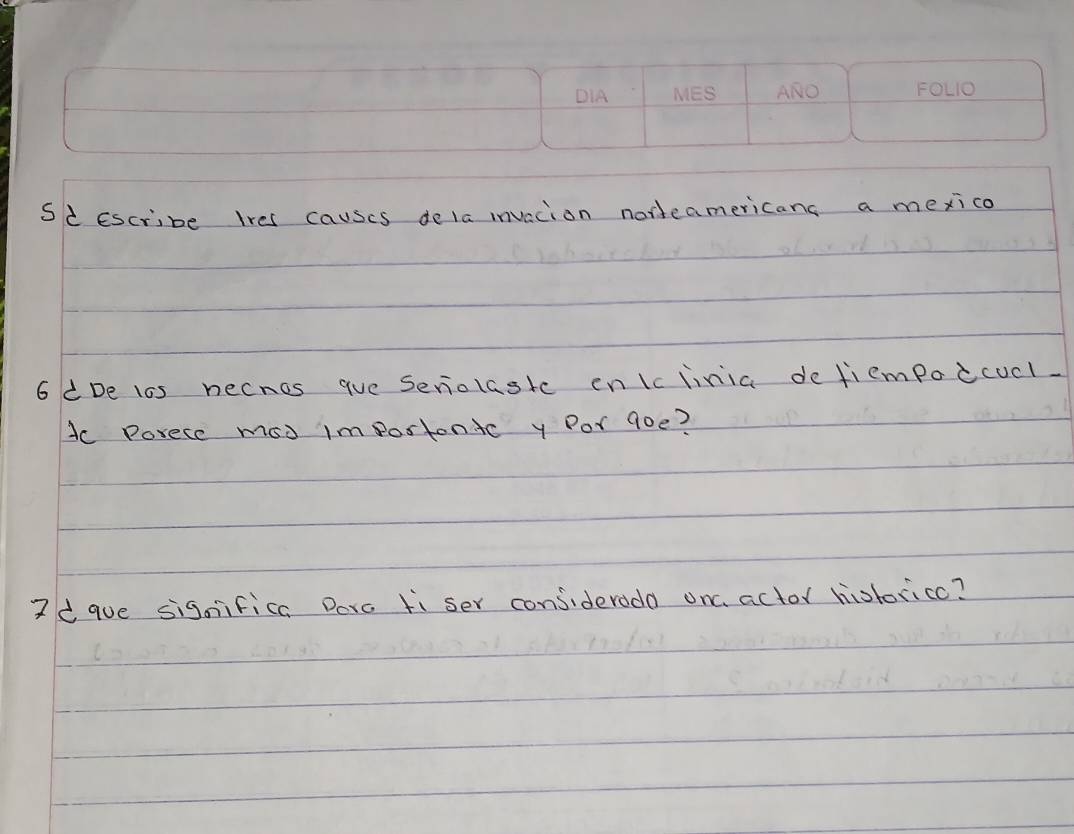 DIA MES AÑO FOLIO
5 ¿ Escribe tres causas de la invacion norteamericana a mexico
6 ¿ De los hechos que señalaste en la linia de tiempo ¿ cual-
te parece mas importante y por que?
7 ¿ que significa para ti ser considerado una actor historico?